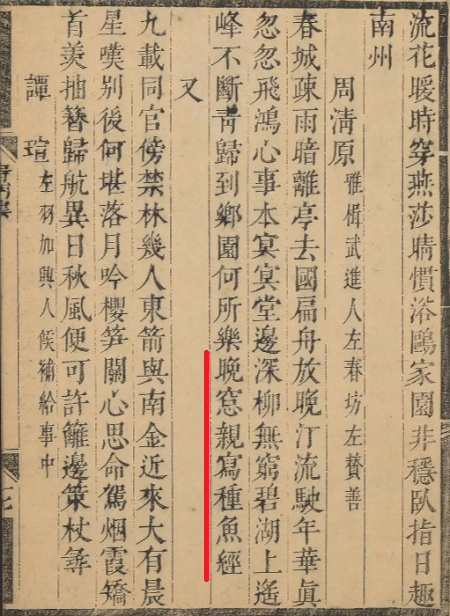 流花暖時穿燕莎晴慣浴鷗家園非穩臥指日趣
南州
周淸原 雅楫武進人左春坊左贊善
春城疎雨暗離亭去國扁舟放晚汀流駛年華眞
忽忽飛鴻心事本㝠㝠堂邊深柳無窮碧湖上遙
峰不斷靑歸到鄉園何所樂晚窓親寫種魚經
又
九載同官傍禁林幾人東箭與南金近來大有晨
星嘆别後何堪落月吟櫻笋關心思命駕烟霞矯
首羡抽簪歸航異日秋風便可許籬邊策杖尋
譚瑄 左羽加興人候補給事中